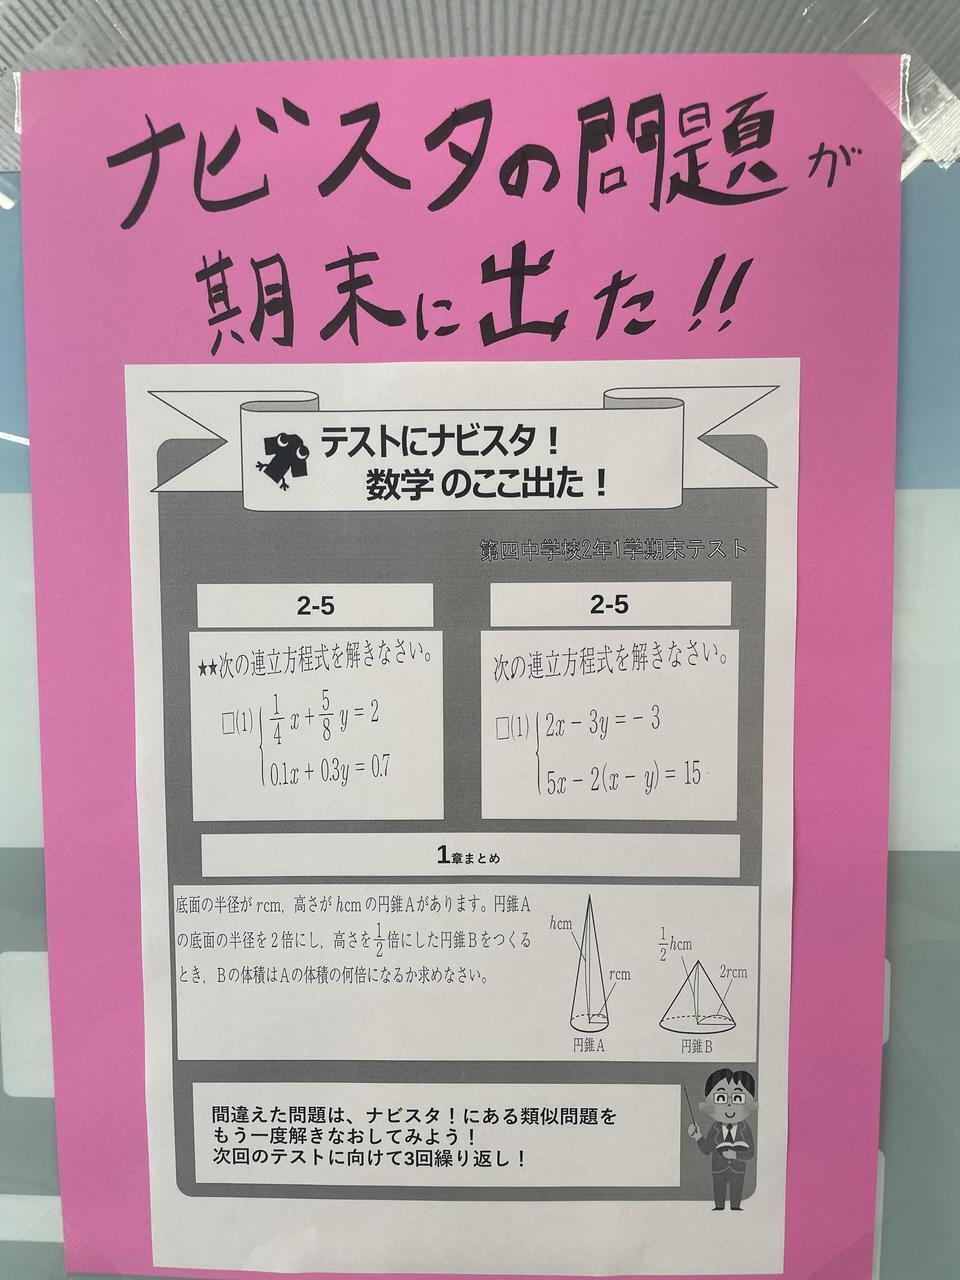 ナビスタの問題が
期末に出た!!
テストにナビスタ！
数学のここ出た！
第四中学校2年1学期末テスト
2-5
★★次の連立方程式を解きなさい。
□(1) { 1/4 x + 5/8 y = 2
0.1x + 0.3y = 0.7
2-5
次の連立方程式を解きなさい。
□(1) { 2x − 3y = − 3
5x − 2(x − y) = 15
1章まとめ
底面の半径がrcm，高さがhcmの円錐Aがあります。円錐A
の底面の半径を2倍にし，高さを1/2倍にした円錐Bをつくる
とき，Bの体積はAの体積の何倍になるか求めなさい。
hcm
rcm
円錐A
1/2 hcm
2rcm
円錐B
間違えた問題は、ナビスタ！にある類似問題を
もう一度解きなおしてみよう！
次回のテストに向けて3回繰り返し！